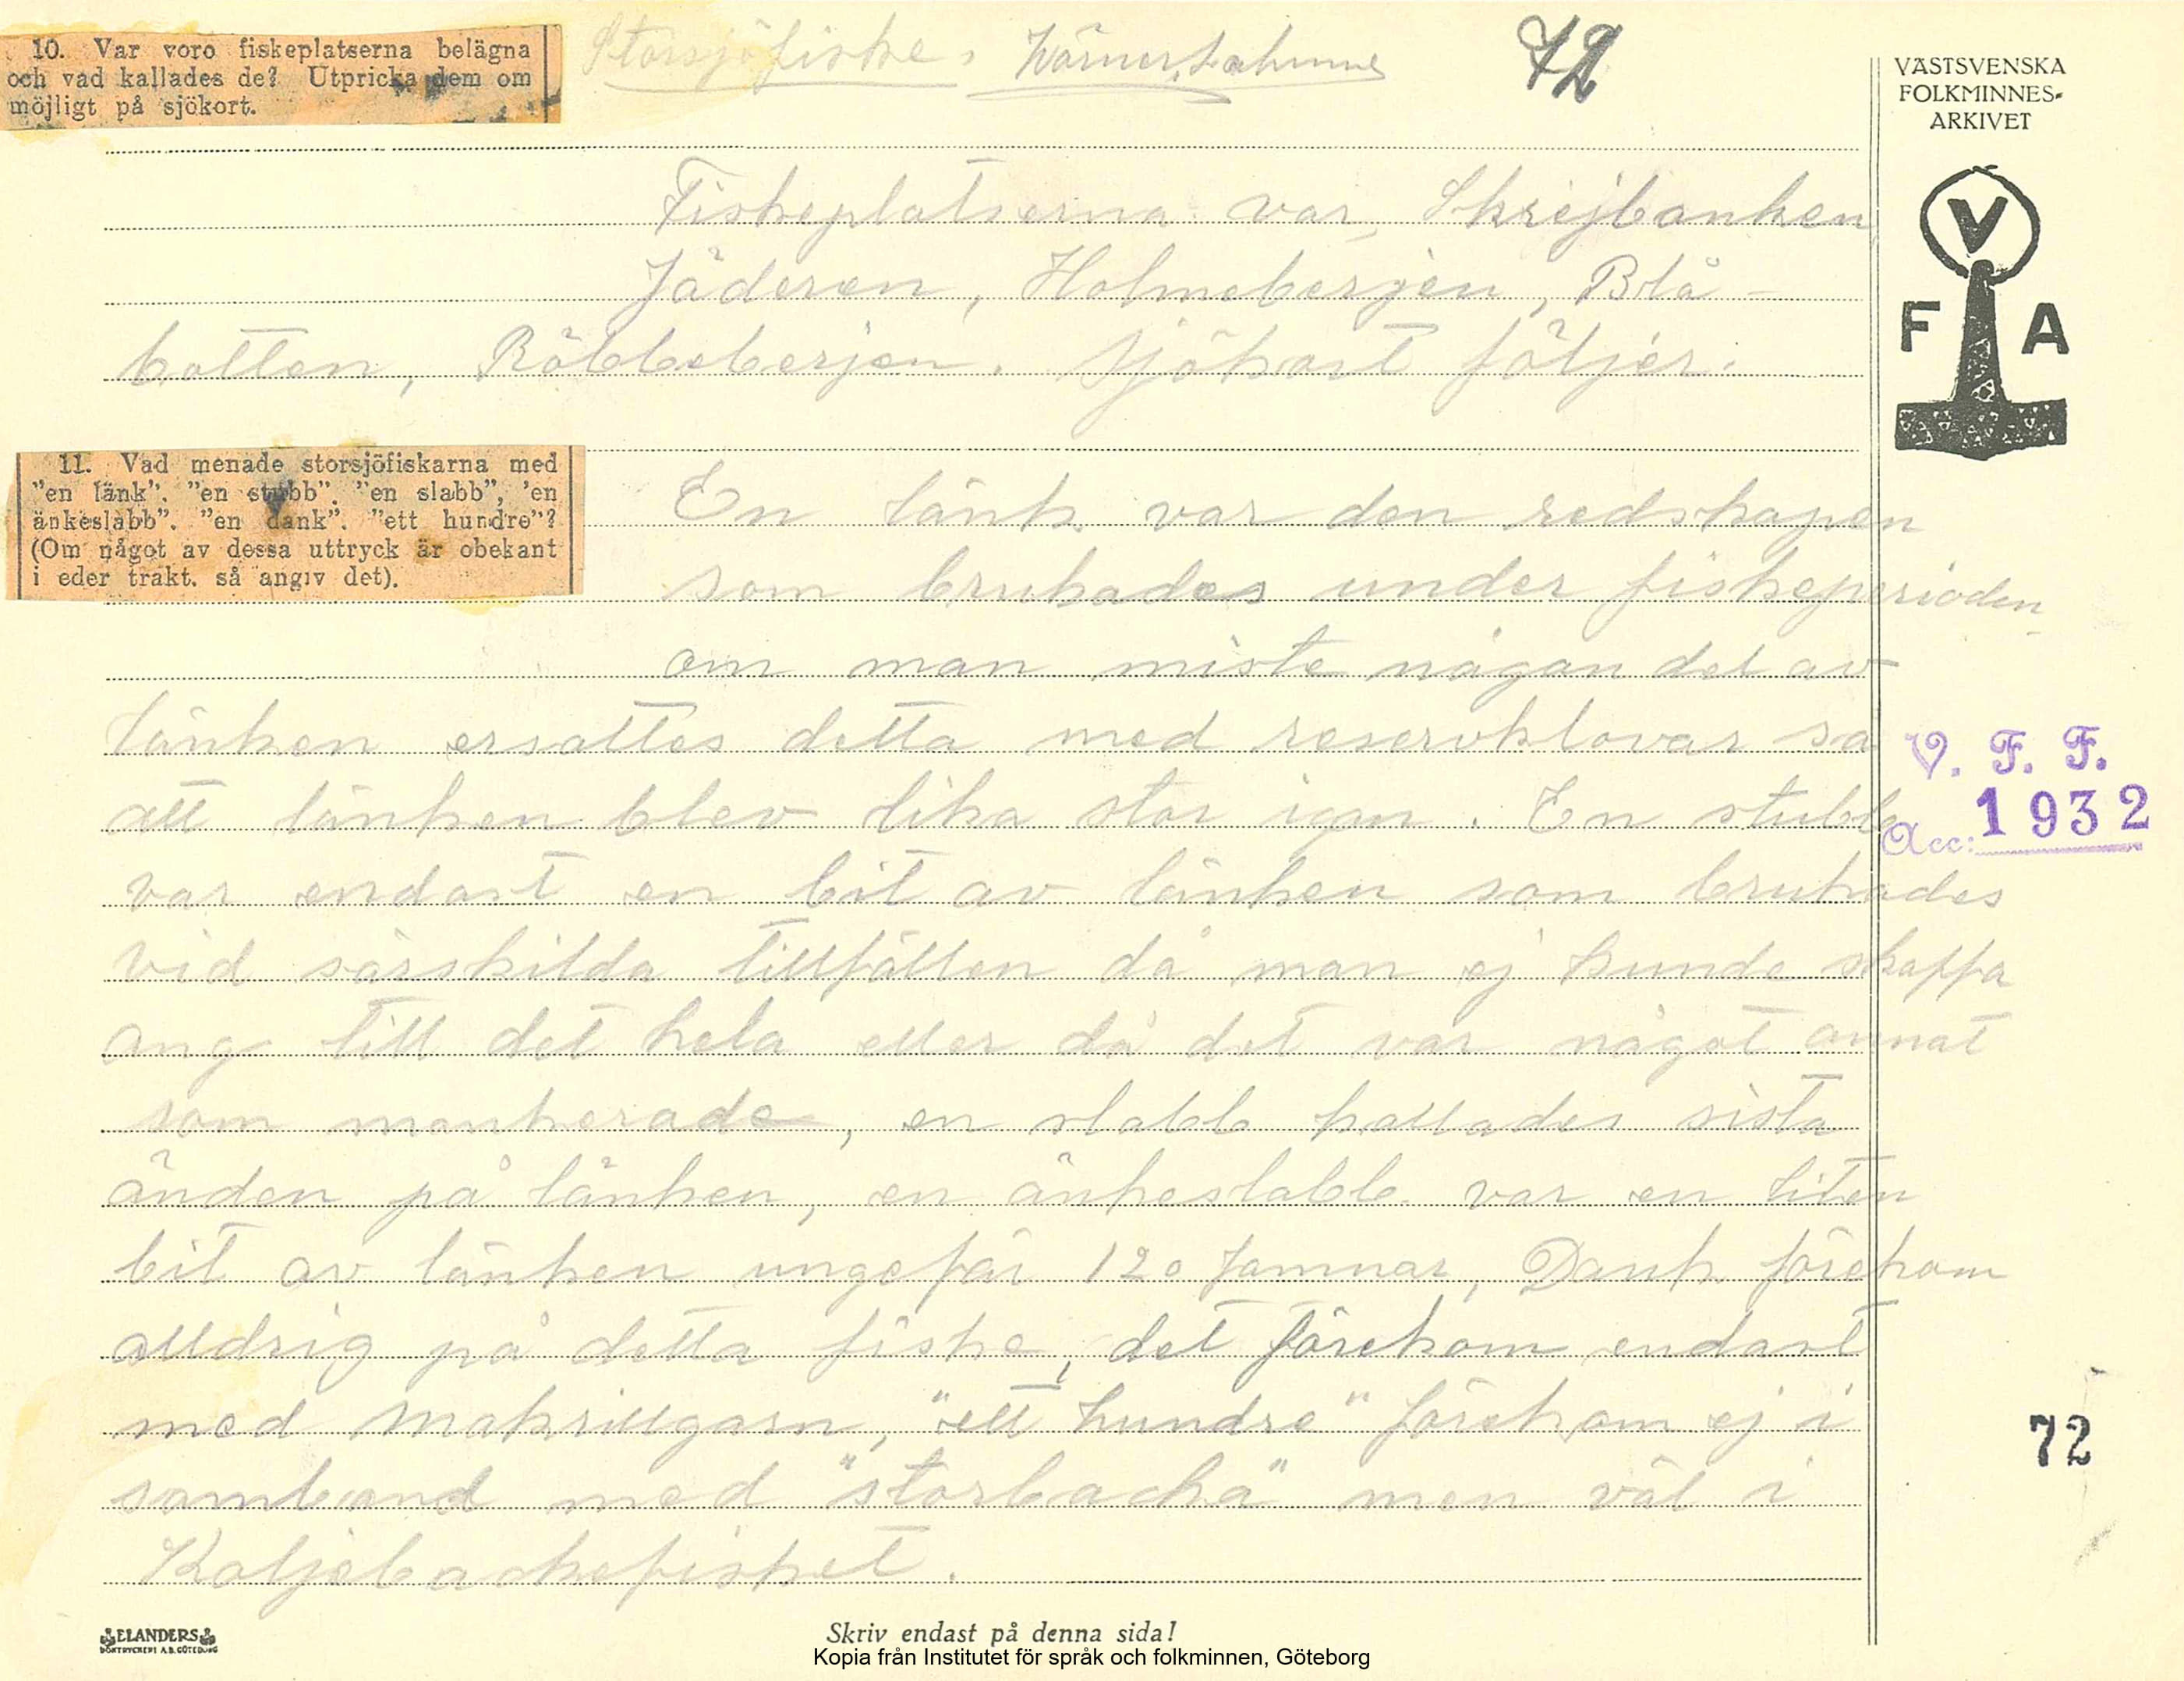 10. Var voro fiskeplatserna belägna
och vad kallades de? Utpricka dem om
möjligt på sjökort.
Storsjöfiske,
72
VÄSTSVENSKA
FOLKMINNES-
ARKIVET
V
F A
Fiskeplatserna var, Skrejbanken
Jäderen, Holmebergen, Blå-
botten, Röbbeberjen. Sjökort följer.
11. Vad menade storsjöfiskarna med
"en länk", "en stubb", "en slabb", 'en
änkeslabb", "en dank", "ett hundre"?
(Om något av dessa uttryck är obekant
i eder trakt, så angiv det).
En länk var den redskapen
som brukades under fiskeperioden
om man miste någan del av
länken ersattes detta med reservklovar så
att länken blev lika stor igen. En stubb
var endast en bit av länken som brukades
vid särskilda tillfällen då man ej kunde skaffa
ang till det hela eller då det var något annat
som mankerade, en slabb kallades sista
änden på länken, en änkeslabb var en liten
bit av länken ungefär 120 famnar, Dank förekom
alldrig på detta fiske, det förekom endast
med makrillgarn, "ett hundre" förekom ej i
samband med "storbacka" men väl i
Koljebackefisket.
V. F. F.
Acc: 1932
72
ELANDERS
BOKTRYCKERI A.B. GÖTEBORG
Skriv endast på denna sida!
Kopia från Institutet för språk och folkminnen, Göteborg